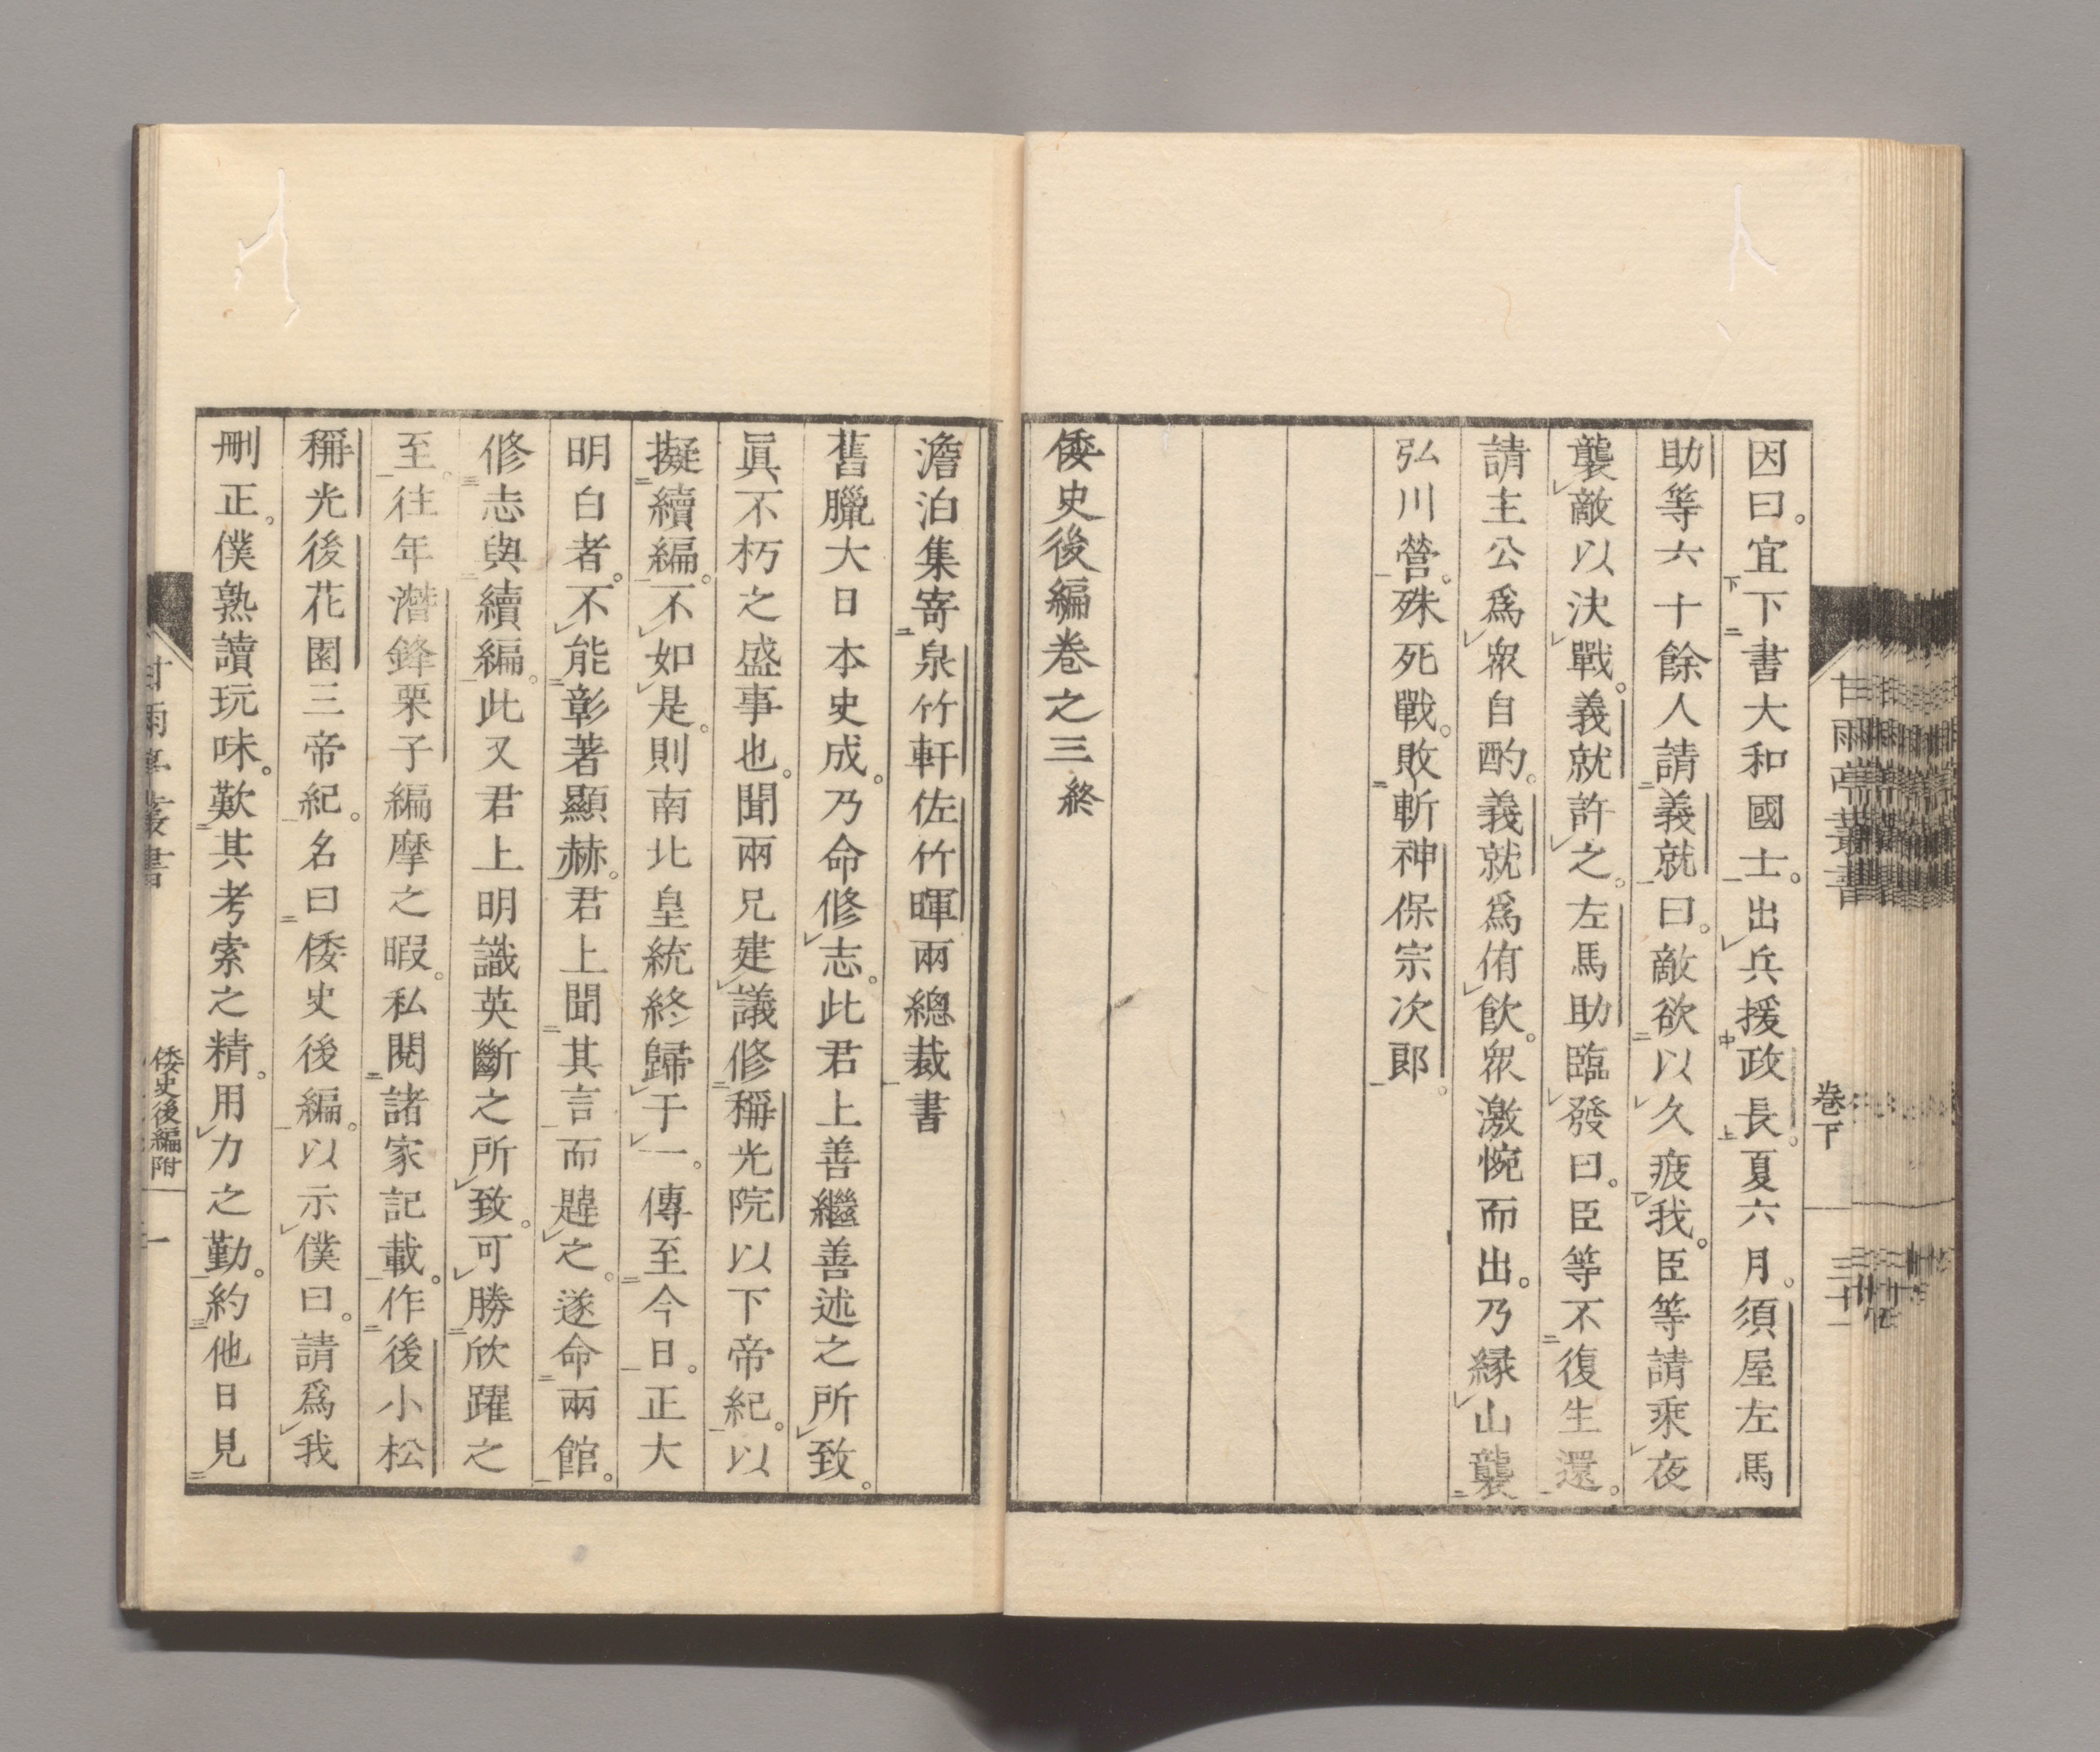 因曰。宜下書大和國士。出兵援政長。夏六月。須屋左馬
助等六十餘人請義就曰。敵欲以久疲我。臣等請乘夜
襲敵以決戰。義就許之。左馬助臨發曰。臣等不復生還。
請主公爲衆自酌。義就爲侑飲。衆激惋而出。乃縁山襲
弘川營。殊死戰。敗斬神保宗次郎。
倭史後編卷之三終
甘雨亭叢書
卷下
三十一
澹泊集寄泉竹軒佐竹暉兩總裁書
舊臘大日本史成。乃命修志。此君上善繼善述之所致。
眞不朽之盛事也。聞兩兄建議修稱光院以下帝紀。以
擬續編。不如是。則南北皇統終歸于一。傳至今日。正大
明白者。不能彰著顯赫。君上聞其言而韙之。遂命兩館。
修志與續編。此又君上明識英斷之所致。可勝欣躍之
至。往年濳鋒栗子編摩之暇。私閱諸家記載。作後小松
稱光後花園三帝紀。名曰倭史後編。以示僕曰。請爲我
刪正。僕熟讀玩味。歎其考索之精。用力之勤。約他日見
甘雨亭叢書
倭史後編附
一